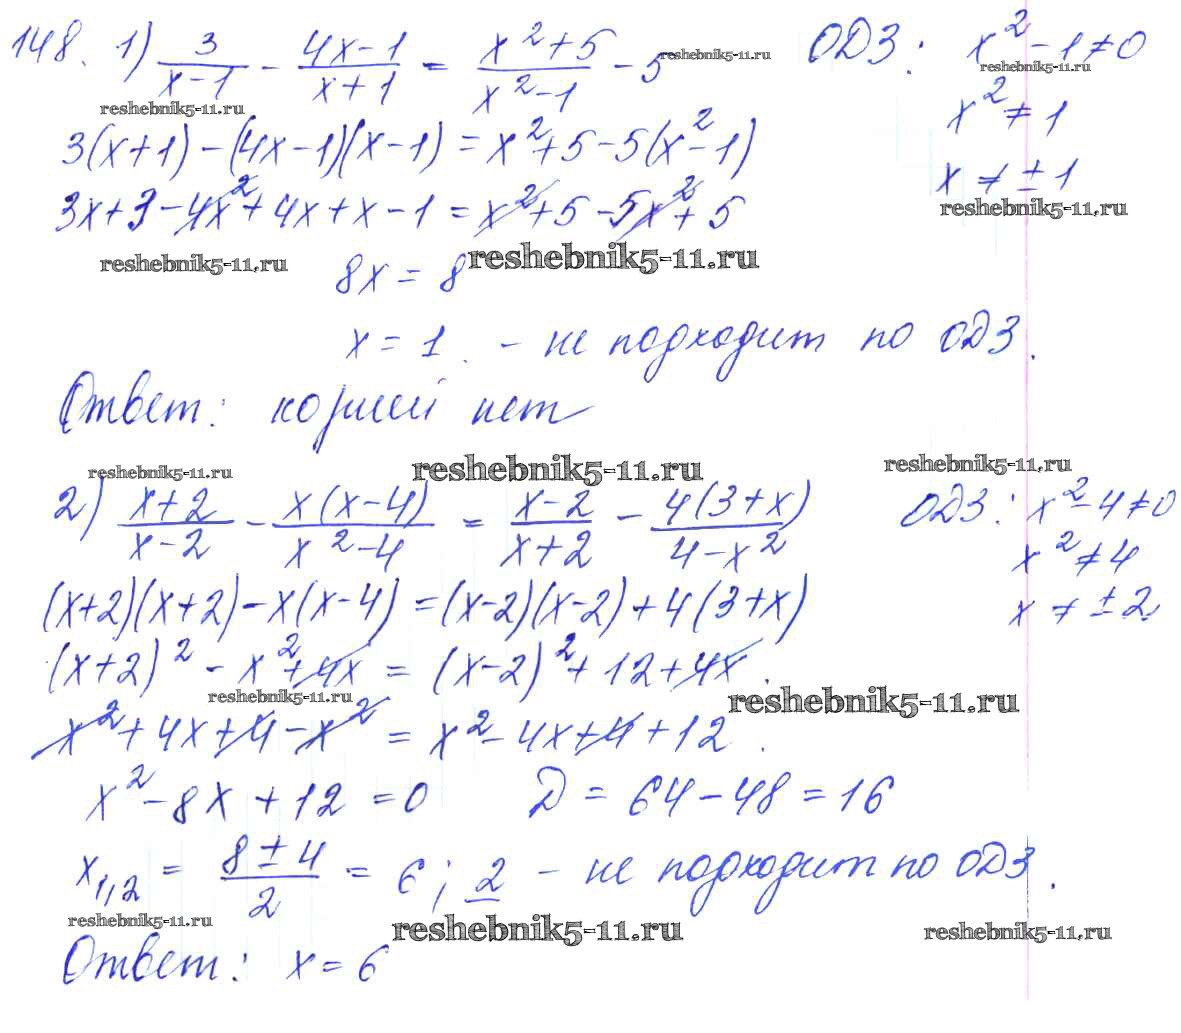 148. 1) 3/(x-1) - (4x-1)/(x+1) = (x²+5)/(x²-1) - 5 ОДЗ: x²-1≠0
reshebnik5-11.ru reshebnik5-11.ru reshebnik5-11.ru
x²≠1
3(x+1)-(4x-1)(x-1)=x²+5-5(x²-1)
x≠±1
3x+3-4x²+4x+x-1=x²+5-5x²+5
reshebnik5-11.ru
reshebnik5-11.ru reshebnik5-11.ru
8x=8
x=1. - не подходит по ОДЗ.
Ответ: корней нет
reshebnik5-11.ru reshebnik5-11.ru reshebnik5-11.ru
2) (x+2)/(x-2) - x(x-4)/(x²-4) = (x-2)/(x+2) - 4(3+x)/(4-x²) ОДЗ: x²-4≠0
x²≠4
(x+2)(x+2)-x(x-4)=(x-2)(x-2)+4(3+x)
x≠±2
(x+2)²-x²+4x=(x-2)²+12+4x.
reshebnik5-11.ru reshebnik5-11.ru
x²+4x+4-x²=x²-4x+4+12.
x²-8x+12=0 D=64-48=16
x1,2 = (8±4)/2 = 6; 2 - не подходит по ОДЗ.
reshebnik5-11.ru reshebnik5-11.ru reshebnik5-11.ru
Ответ: x=6